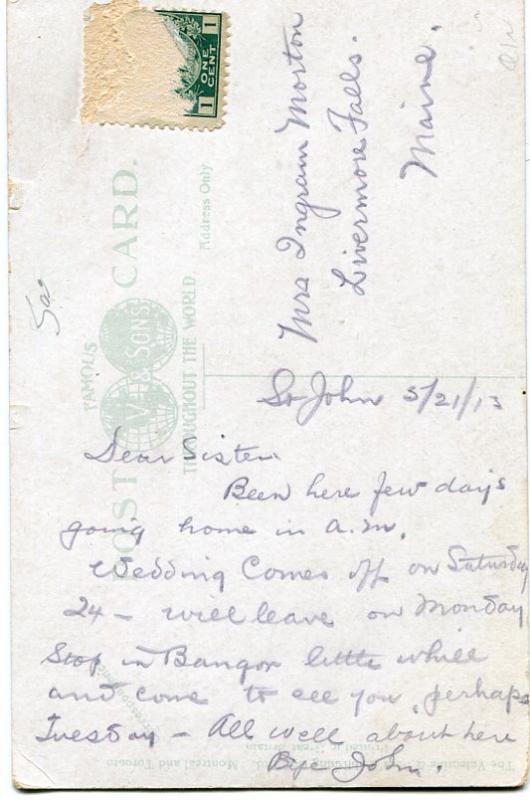 1 ONE CENT 1
Mrs Ingram Morton
Livermore Falls.
Maine.
FAMOUS
POST CARD.
V & SONS
THROUGHOUT THE WORLD
Address Only
St John 5/21/13
Dear Sister
Been here few days
going home in a.m.
Wedding Comes off on Saturday
24 – will leave on Monday
Stop in Bangor little while
and come to see you, perhaps
Tuesday – All well about here
Bye John.
The Valentine & Sons Publishing Co. Ltd. Montreal and Toronto
Printed in Great Britain